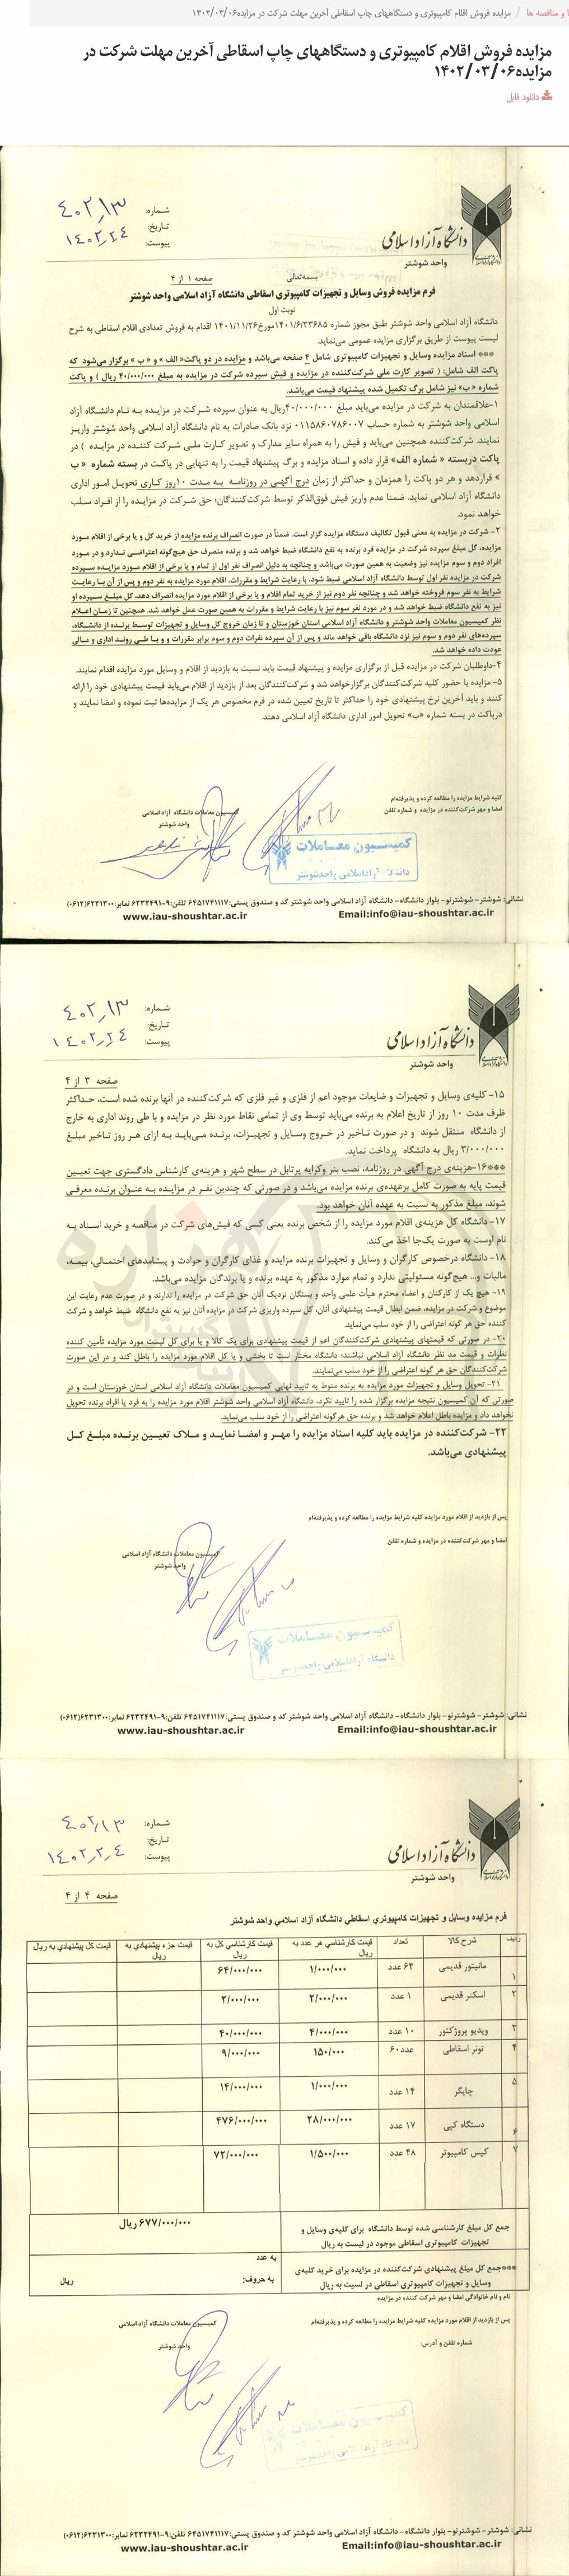 ا و مناقصه ها / مزایده فروش اقلام کامپیوتری و دستگاههای چاپ اسقاطی آخرین مهلت شرکت در مزایده۱۴۰۲/۰۳/۰۶
مزایده فروش اقلام کامپیوتری و دستگاههای چاپ اسقاطی آخرین مهلت شرکت در
مزایده۱۴۰۲/۰۳/۰۶
دانلود فایل
شماره:
تاریخ:
پیوست:
دانشگاه آزاد اسلامی
واحد شوشتر
بسمه‌تعالی
صفحه ۱ از ۴
فرم مزایده فروش وسایل و تجهیزات کامپیوتری اسقاطی دانشگاه آزاد اسلامی واحد شوشتر
نوبت اول
دانشگاه آزاد اسلامی واحد شوشتر طبق مجوز شماره ۱۴۰۱/۶/۳۳۶۸۵مورخ۱۴۰۱/۱۱/۲۶ اقدام به فروش تعدادی اقلام اسقاطی به شرح
لیست پیوست از طریق برگزاری مزایده عمومی می‌نماید.
*** اسناد مزایده وسایل و تجهیزات کامپیوتری شامل ۴ صفحه می‌باشد و مزایده در دو پاکت« الف » و « ب » برگزار می‌شود که
پاکت الف شامل: ( تصویر کارت ملی شرکت‌کننده در مزایده و فیش سپرده شرکت در مزایده به مبلغ ۴۰/۰۰۰/۰۰۰ ریال ) و پاکت
شماره «ب» نیز شامل برگ تکمیل شده پیشنهاد قیمت می‌باشد.
۱-علاقمندان به شرکت در مزایده می‌باید مبلغ ۴۰/۰۰۰/۰۰۰ریال به عنوان سپرده شرکت در مزایده به نام دانشگاه آزاد
اسلامی واحد شوشتر به شماره حساب ۰۱۱۵۸۶۰۷۸۶۰۰۷ نزد بانک صادرات به نام دانشگاه آزاد اسلامی واحد شوشتر واریز
نمایند. شرکت‌کننده همچنین می‌باید و فیش را به همراه سایر مدارک و تصویر کارت ملی شرکت کننده در مزایده ) در
پاکت دربسته « شماره الف» قرار داده و اسناد مزایده و برگ پیشنهاد قیمت را به تنهایی در پاکت در بسته شماره « ب
» قراردهد و هر دو پاکت را همزمان و حداکثر از زمان درج آگهی در روزنامه به مدت ۱۰روز کاری تحویل امور اداری
دانشگاه آزاد اسلامی نماید. ضمنا عدم واریز فیش فوق‌الذکر توسط شرکت‌کنندگان؛ حق شرکت در مزایده را از افراد سلب
خواهد نمود.
۲- شرکت در مزایده به معنی قبول تکالیف دستگاه مزایده گزار است. ضمناً در صورت انصراف برنده مزایده از خرید کل و یا برخی از اقلام مورد
مزایده، کل مبلغ سپرده شرکت در مزایده فرد برنده به نفع دانشگاه ضبط خواهد شد و برنده منصرف حق هیچ‌گونه اعتراضی ندارد و در مورد
افراد دوم و سوم مزایده نیز وضعیت به همین صورت می‌باشد و چنانچه به دلیل انصراف نفر اول از تمام و یا برخی از اقلام مورد مزایده سپرده
شرکت در مزایده نفر اول توسط دانشگاه آزاد اسلامی ضبط شود، با رعایت شرایط و مقررات، اقلام مورد مزایده به نفر دوم و پس از آن با رعایت
شرایط به نفر سوم فروخته خواهد شد و چنانچه نفر دوم نیز از خرید تمام اقلام و یا برخی از اقلام مورد مزایده انصراف دهد، کل مبلغ سپرده او
نیز به نفع دانشگاه ضبط خواهد شد و در مورد نفر سوم نیز با رعایت شرایط و مقررات به همین صورت عمل خواهد شد. همچنین تا زمان اعلام
نظر کمیسیون معاملات واحد شوشتر و دانشگاه آزاد اسلامی استان خوزستان و تا زمان خروج کل وسایل و تجهیزات توسط برنده از دانشگاه،
سپرده‌های نفر دوم و سوم نیز نزد دانشگاه باقی خواهد ماند و پس از آن سپرده نفرات دوم و سوم برابر مقررات و با طی روند اداری و مالی
عودت داده خواهد شد.
۴-داوطلبان شرکت در مزایده قبل از برگزاری مزایده و پیشنهاد قیمت باید نسبت به بازدید از اقلام و وسایل مورد مزایده اقدام نمایند.
۵- مزایده با حضور کلیه شرکت‌کنندگان برگزارخواهد شد و شرکت‌کنندگان بعد از بازدید از اقلام می‌باید قیمت پیشنهادی خود را ارائه
کنند و باید آخرین نرخ پیشنهادی خود را حداکثر تا تاریخ تعیین شده در فرم مخصوص هر یک از مزایده‌ها ثبت نموده و امضا نمایند و
درپاکت در بسته شماره «ب» تحویل امور اداری دانشگاه آزاد اسلامی دهند.
کلیه شرایط مزایده را مطالعه کرده و پذیرفته‌ام
امضا و مهر شرکت‌کننده در مزایده و شماره تلفن
کمیسیون معاملات دانشگاه آزاد اسلامی
واحد شوشتر
کمیسیون معاملات
دانشگاه آزاد اسلامی واحد شوشتر
نشانی: شوشتر- شوشترنو- بلوار دانشگاه- دانشگاه آزاد اسلامی واحد شوشتر کد و صندوق پستی:۶۴۵۱۷۴۱۱۱۷ تلفن:۹-۶۲۳۲۴۹۱ نمابر:۶۲۳۱۳۰۰(۰۶۱۲)
www.iau-shoushtar.ac.ir Email:info@iau-shoushtar.ac.ir
شماره:
تاریخ:
پیوست:
دانشگاه آزاد اسلامی
واحد شوشتر
صفحه ۳ از ۴
۱۵- کلیه‌ی وسایل و تجهیزات و ضایعات موجود اعم از فلزی و غیر فلزی که شرکت‌کننده در آنها برنده شده است، حداکثر
ظرف مدت ۱۰ روز از تاریخ اعلام به برنده می‌باید توسط وی از تمامی نقاط مورد نظر در مزایده و با طی روند اداری به خارج
از دانشگاه منتقل شوند و در صورت تاخیر در خروج وسایل و تجهیزات، برنده می‌باید به ازای هر روز تاخیر مبلغ
۳/۰۰۰/۰۰۰ ریال به دانشگاه پرداخت نماید.
***۱۶-هزینه‌ی درج آگهی در روزنامه، نصب بنر وکرایه پرتابل در سطح شهر و هزینه‌ی کارشناس دادگستری جهت تعیین
قیمت پایه به صورت کامل برعهده‌ی برنده مزایده می‌باشد و در صورتی که چندین نفر در مزایده به عنوان برنده معرفی
شوند، مبلغ مذکور به نسبت به عهده آنان خواهد بود.
۱۷- دانشگاه کل هزینه‌ی اقلام مورد مزایده را از شخص برنده یعنی کسی که فیش‌های شرکت در مناقصه و خرید اسناد به
نام اوست به صورت یک‌جا اخذ می‌کند.
۱۸- دانشگاه درخصوص کارگران و وسایل و تجهیزات برنده مزایده و غذای کارگران و حوادث و پیشامدهای احتمالی، بیمه،
مالیات و... هیچ‌گونه مسئولیتی ندارد و تمام موارد مذکور به عهده برنده و یا برندگان مزایده می‌باشد.
۱۹- هیچ یک از کارکنان و اعضاء محترم هیأت علمی واحد و بستگان نزدیک آنان حق شرکت در مزایده را ندارند و در صورت عدم رعایت این
موضوع و شرکت در مزایده، ضمن ابطال قیمت پیشنهادی آنان، کل سپرده واریزی شرکت در مزایده آنان نیز به نفع دانشگاه ضبط خواهد شد و شرکت
کننده حق هر گونه اعتراضی را از خود سلب می‌نماید.
۲۰- در صورتی که قیمتهای پیشنهادی شرکت‌کنندگان اعم از قیمت پیشنهادی برای یک کالا و یا برای کل لیست مورد مزایده تأمین کننده
نظرات و قیمت مد نظر دانشگاه آزاد اسلامی نباشند؛ دانشگاه مختار است تا بخشی و یا کل اقلام مورد مزایده را باطل کند و در این صورت
شرکت‌کنندگان حق هر گونه اعتراضی را از خود سلب می‌نمایند.
۲۱- تحویل وسایل و تجهیزات مورد مزایده به برنده منوط به تایید نهایی کمیسیون معاملات دانشگاه آزاد اسلامی استان خوزستان است و در
صورتی که آن کمیسیون نتیجه مزایده برگزار شده را تایید نکرد، دانشگاه آزاد اسلامی واحد شوشتر اقلام مورد مزایده را به فرد یا افراد برنده تحویل
نخواهد داد و مزایده باطل اعلام خواهد شد و برنده حق هرگونه اعتراضی را از خود سلب می‌نماید.
۲۲- شرکت‌کننده در مزایده باید کلیه اسناد مزایده را مهر و امضا نماید و ملاک تعیین برنده مبلغ کل
پیشنهادی می‌باشد.
پس از بازدید از اقلام مورد مزایده کلیه شرایط مزایده را مطالعه کرده و پذیرفته‌ام
امضا و مهر شرکت‌کننده در مزایده و شماره تلفن
کمیسیون معاملات دانشگاه آزاد اسلامی
واحد شوشتر
کمیسیون معاملات
دانشگاه آزاد اسلامی واحد شوشتر
نشانی: شوشتر- شوشترنو- بلوار دانشگاه- دانشگاه آزاد اسلامی واحد شوشتر کد و صندوق پستی:۶۴۵۱۷۴۱۱۱۷ تلفن:۹-۶۲۳۲۴۹۱ نمابر:۶۲۳۱۳۰۰(۰۶۱۲)
www.iau-shoushtar.ac.ir Email:info@iau-shoushtar.ac.ir
شماره:
تاریخ:
پیوست:
دانشگاه آزاد اسلامی
واحد شوشتر
صفحه ۴ از ۴
فرم مزایده وسایل و تجهیزات کامپیوتری اسقاطی دانشگاه آزاد اسلامی واحد شوشتر
ردیف شرح کالا تعداد قیمت کارشناسی هر عدد به ریال قیمت کارشناسی کل به ریال قیمت جزء پیشنهادی به ریال قیمت کل پیشنهادی به ریال
۱ مانیتور قدیمی ۶۴ عدد ۱/۰۰۰/۰۰۰ ۶۴/۰۰۰/۰۰۰
۲ اسکنر قدیمی ۱ عدد ۲/۰۰۰/۰۰۰ ۲/۰۰۰/۰۰۰
۳ ویدیو پروژکتور ۱۰ عدد ۴/۰۰۰/۰۰۰ ۴۰/۰۰۰/۰۰۰
۴ تونر اسقاطی ۶۰عدد ۱۵۰/۰۰۰ ۹/۰۰۰/۰۰۰
۵ چاپگر ۱۴ عدد ۱/۰۰۰/۰۰۰ ۱۴/۰۰۰/۰۰۰
۶ دستگاه کپی ۱۷ عدد ۲۸/۰۰۰/۰۰۰ ۴۷۶/۰۰۰/۰۰۰
۷ کیس کامپیوتر ۴۸ عدد ۱/۵۰۰/۰۰۰ ۷۲/۰۰۰/۰۰۰
جمع کل مبلغ کارشناسی شده توسط دانشگاه برای کلیه‌ی وسایل و
تجهیزات کامپیوتری اسقاطی موجود در لیست به ریال
۶۷۷/۰۰۰/۰۰۰ ریال
***جمع کل مبلغ پیشنهادی شرکت‌کننده در مزایده برای خرید کلیه‌ی
وسایل و تجهیزات کامپیوتری اسقاطی در لیست به ریال
به عدد
به حروف: ریال
نام و نام خانوادگی امضا و مهر شرکت کننده در مزایده
پس از بازدید از اقلام مورد مزایده کلیه شرایط مزایده را مطالعه کرده و پذیرفته‌ام
شماره تلفن و آدرس:
کمیسیون معاملات دانشگاه آزاد اسلامی
واحد شوشتر
کمیسیون معاملات
دانشگاه آزاد اسلامی واحد شوشتر
نشانی: شوشتر- شوشترنو- بلوار دانشگاه- دانشگاه آزاد اسلامی واحد شوشتر کد و صندوق پستی:۶۴۵۱۷۴۱۱۱۷ تلفن:۹-۶۲۳۲۴۹۱ نمابر:۶۲۳۱۳۰۰(۰۶۱۲)
www.iau-shoushtar.ac.ir Email:info@iau-shoushtar.ac.ir